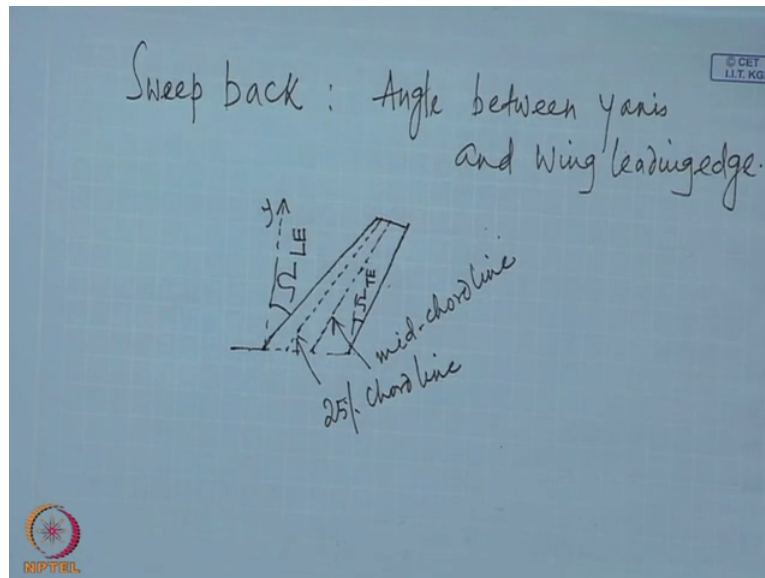 © CET
I.I.T. KG
Sweep back : Angle between y axis
and wing leading edge.
y
Ω LE
Ω TE
mid-chord line
25% chord line
NPTEL